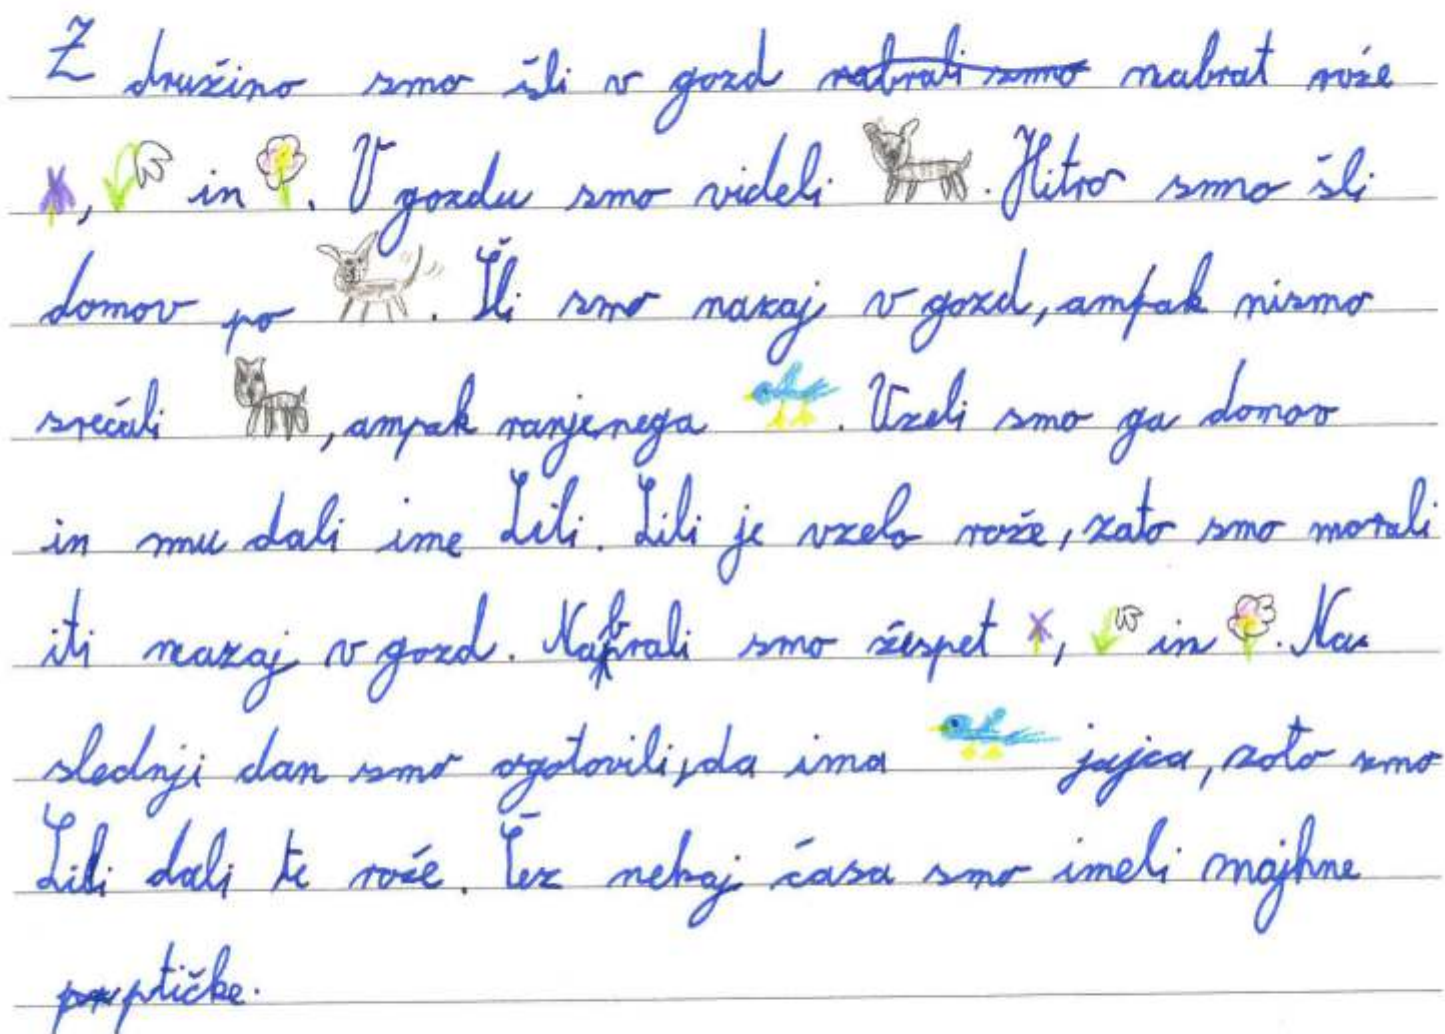 Z družino smo šli v gozd nabrali smo nabrat rože
, in . V gozdu smo videli . Hitro smo šli
domov po . Šli smo nazaj v gozd, ampak nismo
srečali , ampak ranjenega . Vzeli smo ga domov
in mu dali ime Lili. Lili je vzela rože, zato smo morali
iti nazaj v gozd. Nabrali smo žespet , in . Na-
slednji dan smo ugotovili, da ima jajca, zato smo
Lili dali te rože. Čez nekaj časa smo imeli majhne
ptičke.